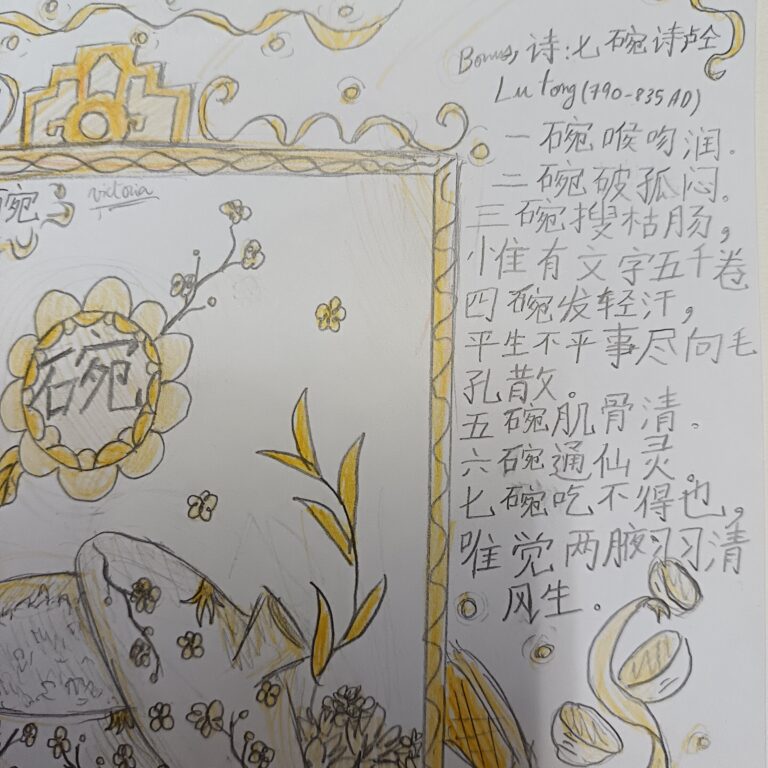 Bonus, 诗:七碗诗卢仝
Lu tong (790-835 AD)
一碗喉吻润.
二碗破孤闷。
三碗搜枯肠,
惟有文字五千卷
四碗发轻汗,
平生不平事尽向毛
孔散。
五碗肌骨清.
六碗通仙灵。
七碗吃不得也,
唯觉两腋习习清
风生.
碗
victoria
碗